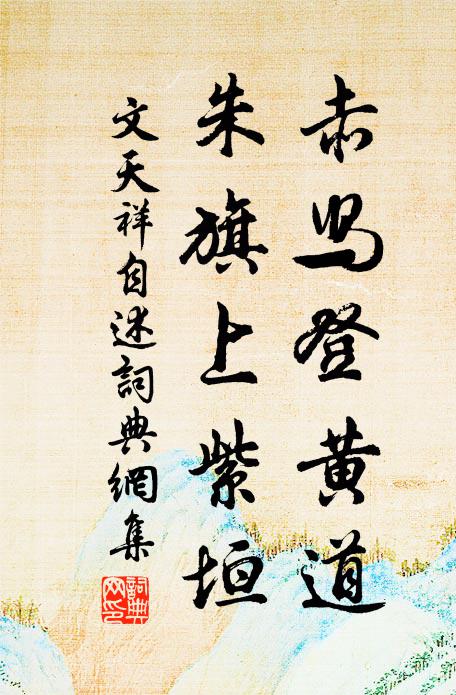 赤舄登黄道
朱旗上紫垣
文天祥自述詞典網集
詞典网印